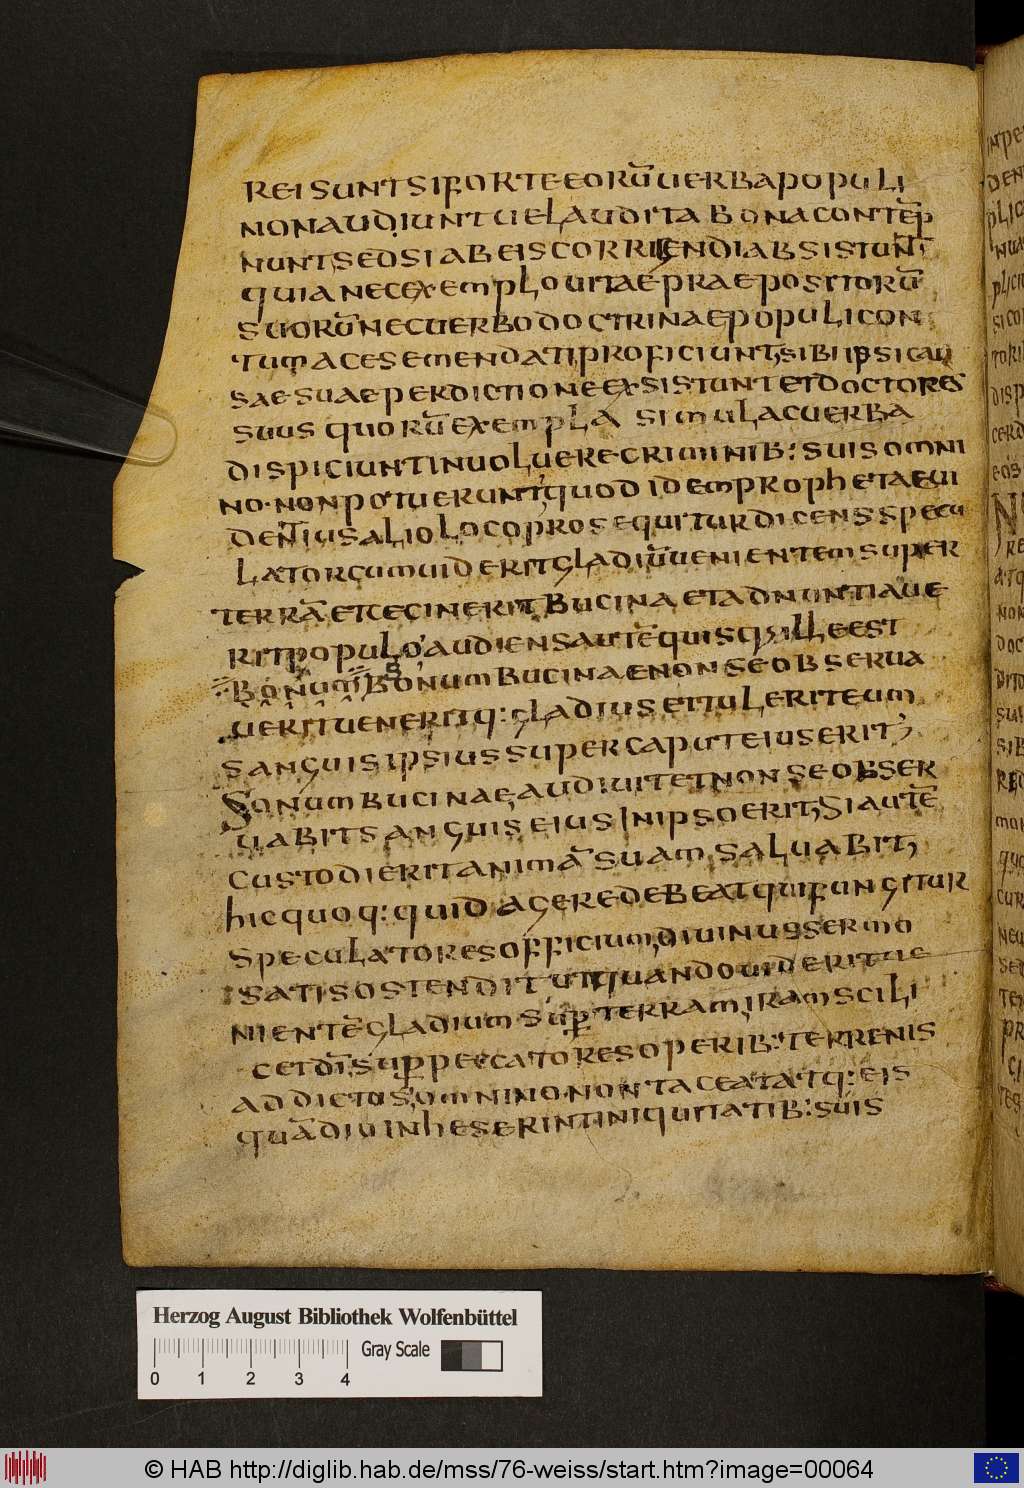 REI SUNT SI FORTE EORŪ UERBA POPULI
NON AUDIUNT UEL AUDITA BONA CONTĒP
NUNT SED SI AB EIS CORRIGENDI ABSISTUNT
QUIA NEC EXEMPLO UITAE PRAEPOSITORŪ
SUORŪ NEC UERBO DOCTRINAE POPULI CON
TUMACES EMENDATI PROFICIUNT SIBI IPSI CAU
SAE SUAE PERDICTIONE EXSISTUNT ET DOCTORES
SUUS QUORŪ EXEMPLA SIMUL AC UERBA
DISPICIUNT INUOLUERE CRIMINIB: SUIS OMNI
NO · NON POTUERUNT QUOD IDEM PROPHETA EUI
DENTIUS ALIO LOCO PROSEQUITUR DICENS SPECU
LATOR CUM UIDERIT GLADIŪ UENIENTEM SUPER
TERRĀ ET CECINERIT BUCINA ET ADNUNTIAUE
RIT POPULO AUDIENS AUTĒ QUISQ ILLE EST
BONUM BONUM BUCINAE NON SE OBSERUA
UERIT UENERITQ: GLADIUS ET TULERIT EUM
SANGUIS IPSIUS SUPER CAPUT EIUS ERIT
SONUM BUCINAE AUDIUIT ET NON SE OBSER
UABIT SANGUIS EIUS IN IPSO ERIT SI AUTĒ
CUSTODIERIT ANIMĀ SUAM SALUABIT
HIC QUOQ: QUID AGERE DEBEAT QUI FUNGITUR
SPECULATORES OFFICIUM DIUINUS SERMO
SATIS OSTENDIT UT QUANDO UIDERIT UE
NIENTĒ GLADIUM SUP TERRAM IRAM SCILI
CET DĪ SUP PECCATORES OPERIB: TERRENIS
ADDICTOS OMNINO NON TACEAT ATQ: EIS
QUĀDIU INHESERINT INIQUITATIB: SUIS
Herzog August Bibliothek Wolfenbüttel
Gray Scale
0 1 2 3 4
© HAB http://diglib.hab.de/mss/76-weiss/start.htm?image=00064